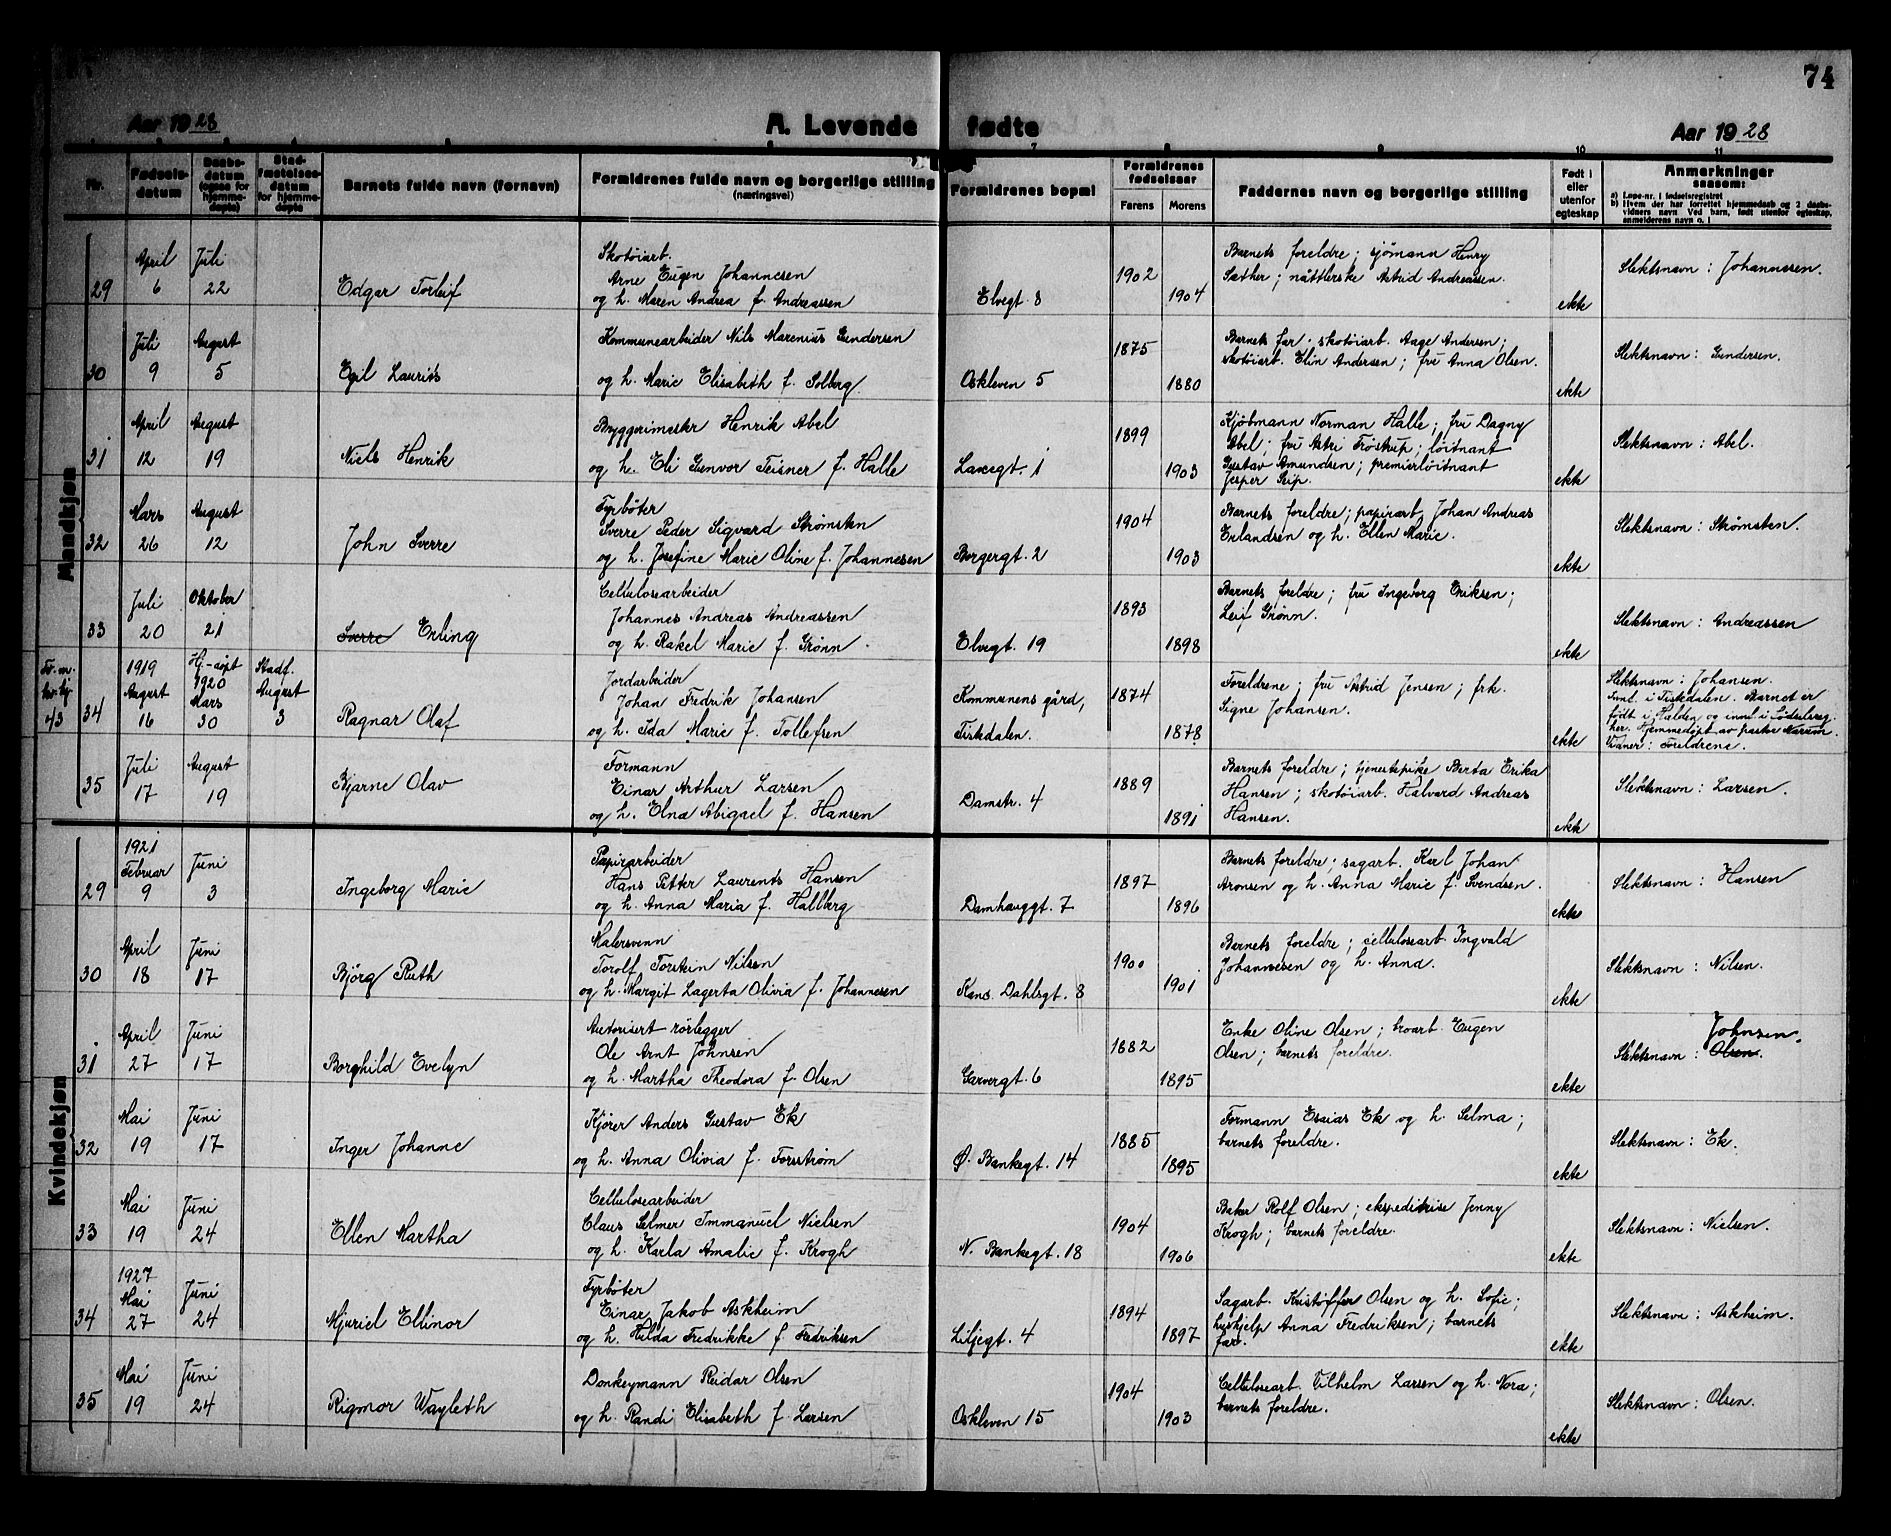 74
Aar 1928 A. Levende fødte Aar 1928
7 8 9 10 11
Nr. Fødselsdatum Daabsdatum (ogsaa for hjemmedøpte) Stadfæstelsesdatum for hjemmedøpte Barnets fulde navn (fornavn) Formldrenes fulde navn og borgerlige stilling (næringsvei) Formldrenes bopæl Formldrenes fødselsaar Farens Morens Faddernes navn og borgerlige stilling Født i eller utenfor egteskap Anmerkninger saasom:
a) Løpe-nr. i fødselsregistret
b) Hvem der har forrettet hjemmedaab og 2 daabsvidners navn Ved barn, født utenfor egteskap, anmelderens navn o. l
Mandkjøn
29 April 6 Juli 22 Edgar Torleif
Skotøiarb.
Arne Eugen Johannesen
og h. Maren Andrea f. Andreassen
Elvegt 8 1902 1904
Barnets foreldre; sjømann Henry
Sæther; nåtlerske Astrid Andreassen.
ekte Slektsnavn: Johannesen.
30 Juli 9 August 5 Egil Laurits
Kommunearbeider Nils Marenius Gundersen
og h. Marie Elisabeth f. Solberg
Oskleven 5 1875 1880
Barnets far. skotøiarb. Aage Andersen;
skotøiarb. Elin Andersen; fru Anna Olsen.
ekte Slektsnavn: Gundersen.
31 April 12 August 19 Niels Henrik
Bryggerimester Henrik Abel
og h. Eli Gunvor Teisner f. Halle
Laxegt. 1 1899 1903
Kjøbmann Norman Halle; fru Dagny
Abel; fru Astri Trøstrup; løitnant
Gustav Amundsen; premierløitnant
Jesper Seip.
ekte Slektsnavn: Abel.
32 Mars 26 August 12 John Sverre
Fyrbøter
Sverre Peder Sigvard Strømsten
og h. Josefine Marie Oline f. Johannesen
Borgergt. 2 1904 1903
Barnets foreldre; papirarb. Johan Andreas
Erlandsen og h. Ellen Marie.
ekte Slektsnavn: Strømsten.
33 Juli 20 Oktober 21 Sverre Erling
Cellulosearbeider
Johannes Andreas Andreassen
og h. Rakel Marie f. Grønn.
Elvegt. 19 1893 1898
Barnets foreldre; fru Ingeborg Eriksen;
Leif Grønn.
ekte Slektsnavn: Andreassen
43 34 1919 August 16 Hj.-døpt 1920 Mars 30 Stadf. August 3 Ragnar Olaf
Jordarbeider
Johan Fredrik Johansen
og h. Ida Marie f. Tollefsen
Kommunens gård,
Tistedalen. 1874 1878
Foreldrene; fru Astrid Jensen; frk.
Signe Johansen.
ekte Slektsnavn: Johansen.
Innl. i Tistedalen. Barnet er
født i Halden og innl. i fødselsreg.
her. Hjemmedøpt av pastor Narum.
Vidner: Foreldrene.
35 Juli 17 August 19 Bjarne Olav
Formann
Einar Arthur Larsen
og h. Elna Abigael f. Hansen
Damstr. 4 1889 1891
Barnets foreldre; tjenestepike Berta Erika
Hansen; skotøiarb. Halvard Andreas
Hansen.
ekte Slektsnavn: Larsen.
Kvindekjøn
29 1921 Februar 9 Juni 3 Ingeborg Marie
Papirarbeider
Hans Petter Laurents Hansen
og h. Anna Maria f. Hallberg
Damhauggt. 7 1897 1896
Barnets foreldre; sagarb. Karl Johan
Aronsen og h. Anna Marie f. Svendsen.
ekte Slektsnavn: Hansen
30 April 18 Juni 17 Bjørg Ruth
Malersvenn
Torolf Torstein Nilsen
og h. Margit Lagerta Olivia f. Johannesen
Kans. Dahlsgt. 8 1900 1901
Barnets foreldre; cellulosearb. Ingvald
Johannesen og h. Anna.
ekte Slektsnavn: Nilsen.
31 April 27 Juni 17 Borghild Evelyn
Autorisert rørlegger
Ole Arnt Johnsen
og h. Martha Theodora f. Olsen
Garvergt. 6 1882 1895
Enke Oline Olsen; broarb. Eugen
Olsen; barnets foreldre.
ekte Slektsnavn: Olsen. Johnsen.
32 Mai 19 Juni 17 Inger Johanne
Kjører Anders Gustav Ek
og h. Anna Olivia f. Forsstrøm
Ø. Bankegt. 14 1885 1895
Formann Esaias Ek og h. Selma;
barnets foreldre.
ekte Slektsnavn: Ek.
33 Mai 19 Juni 24 Ellen Martha
Cellulosearbeider
Claus Selmer Immanuel Nielsen
og h. Karla Amalie f. Krogh
N. Bankegt. 18 1904 1906
Baker Rolf Olsen; ekspeditrise Jenny
Krogh; barnets foreldre.
ekte Slektsnavn: Nielsen.
34 1927 Mai 27 Juni 24 Mjuriel Ellinor
Fyrbøter
Einar Jakob Askheim
og h. Hilda Fredrikke f. Fredriksen
Liljegt. 4 1894 1897
Sagarb. Kristoffer Olsen og h. Sofie;
hushjelp Anna Fredriksen; barnets
far.
ekte Slektsnavn: Askheim.
35 Mai 19 Juni 24 Rigmor Wayleth
Donkeymann Reidar Olsen
og h. Randi Elisabeth f. Larsen
Oskleven 15 1904 1903
Cellulosearb. Vilhelm Larsen og h. Nora;
barnets foreldre.
ekte Slektsnavn: Olsen.